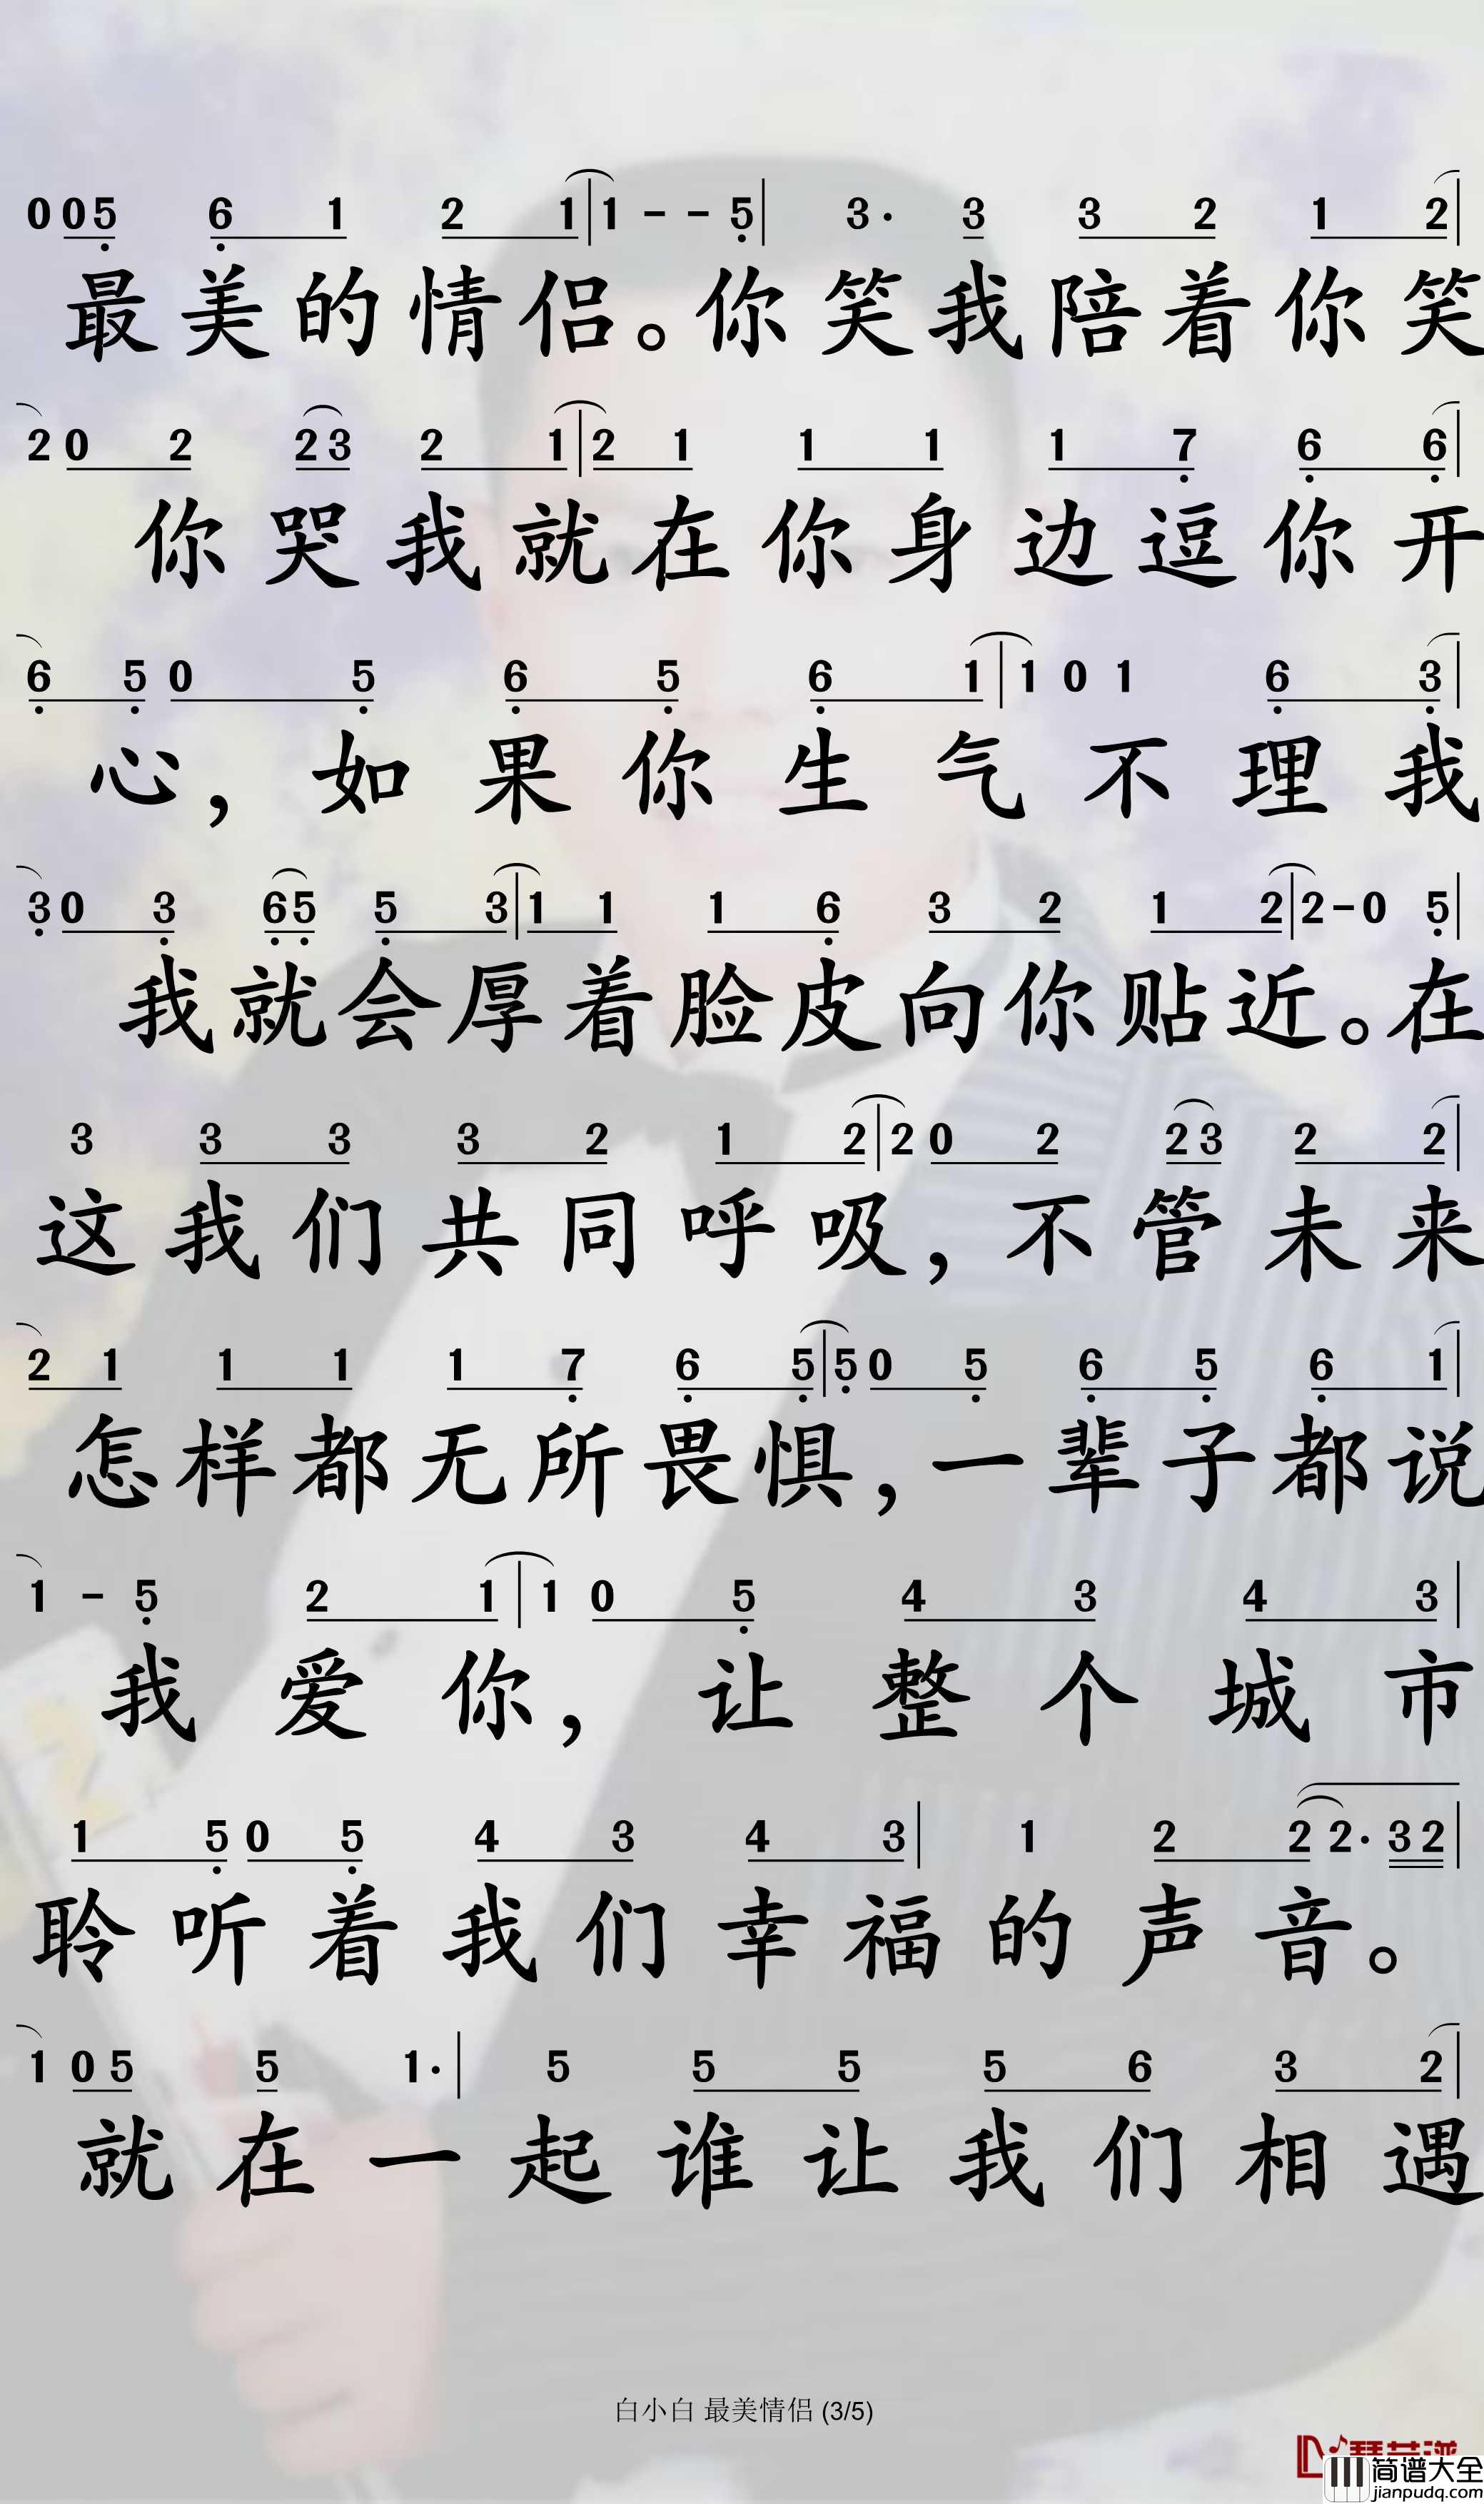 0 0 5 6 1 2 1 | 1 - - 5 | 3 . 3 3 2 1 2 |
最美的情侣。你笑我陪着你笑
2 0 2 2 3 2 1 | 2 1 1 1 1 7 6 6 |
你哭我就在你身边逗你开
6 5 0 5 6 5 6 1 | 1 0 1 6 3 |
心，如果你生气不理我
3 0 3 6 5 5 3 | 1 1 1 6 3 2 1 2 | 2 - 0 5 |
我就会厚着脸皮向你贴近。在
3 3 3 3 2 1 2 | 2 0 2 2 3 2 2 |
这我们共同呼吸，不管未来
2 1 1 1 1 7 6 5 | 5 0 5 6 5 6 1 |
怎样都无所畏惧，一辈子都说
1 - 5 2 1 | 1 0 5 4 3 4 3 |
我爱你，让整个城市
1 5 0 5 4 3 4 3 | 1 2 2 2 . 3 2 |
聆听着我们幸福的声音。
1 0 5 5 1 . | 5 5 5 5 6 3 2 |
就在一起谁让我们相遇
白小白 最美情侣 (3/5)
简谱大全
jianpudq.com